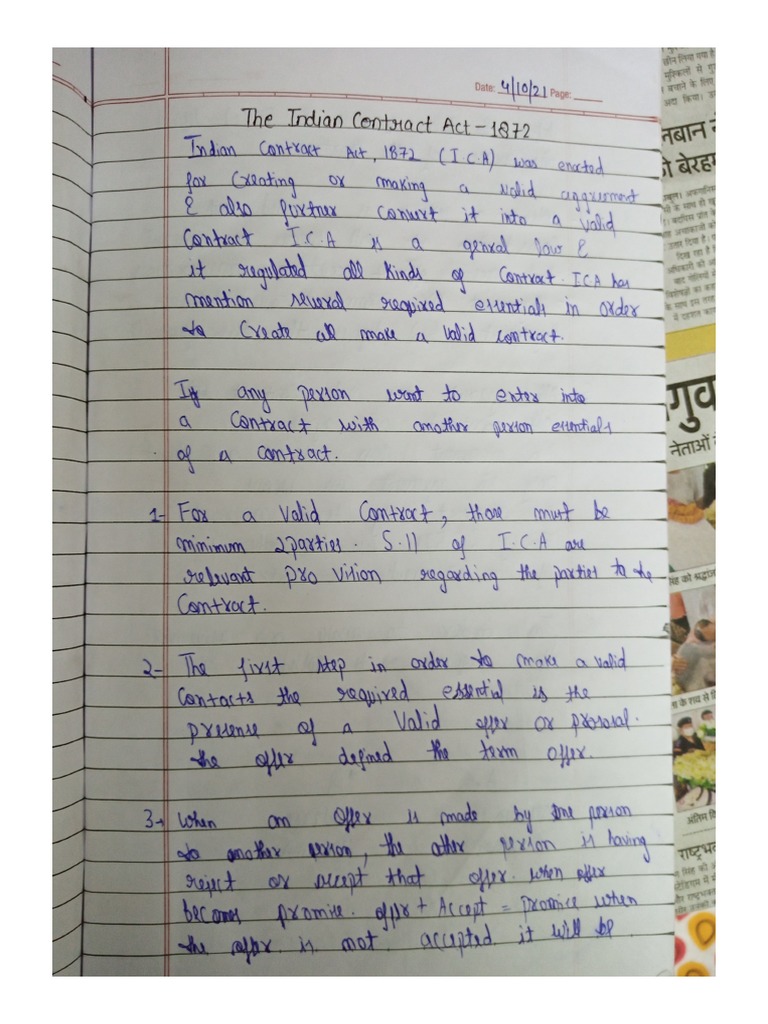 Date: 4/10/21 Page:
The Indian Contract Act - 1872
Indian Contract Act, 1872 (I.C.A) was enacted
for Creating or making a valid aggrement
& also further convert it into a valid
Contract I.C.A is a genral law &
it regulated all kinds of Contract. ICA has
mention several required essentials in order
to Create all make a valid contract.
If any person want to enter into
a Contract with another person essentials
of a contract.
1- For a valid Contract, there must be
minimum 2 parties. S.11 of I.C.A are
relevant pro vision regarding the parties to the
Contract.
2- The first step in order to make a valid
Contacts the required essential is the
presense of a Valid offer or proposal.
the offer defined the term offer.
3- When an offer is made by one person
to another person, the other person is having
reject or accept that offer. when offer
becomes promise. offer + Accept = promise when
the offer is not accepted it will be
नेताओं
अंतिम
राष्ट्रभ